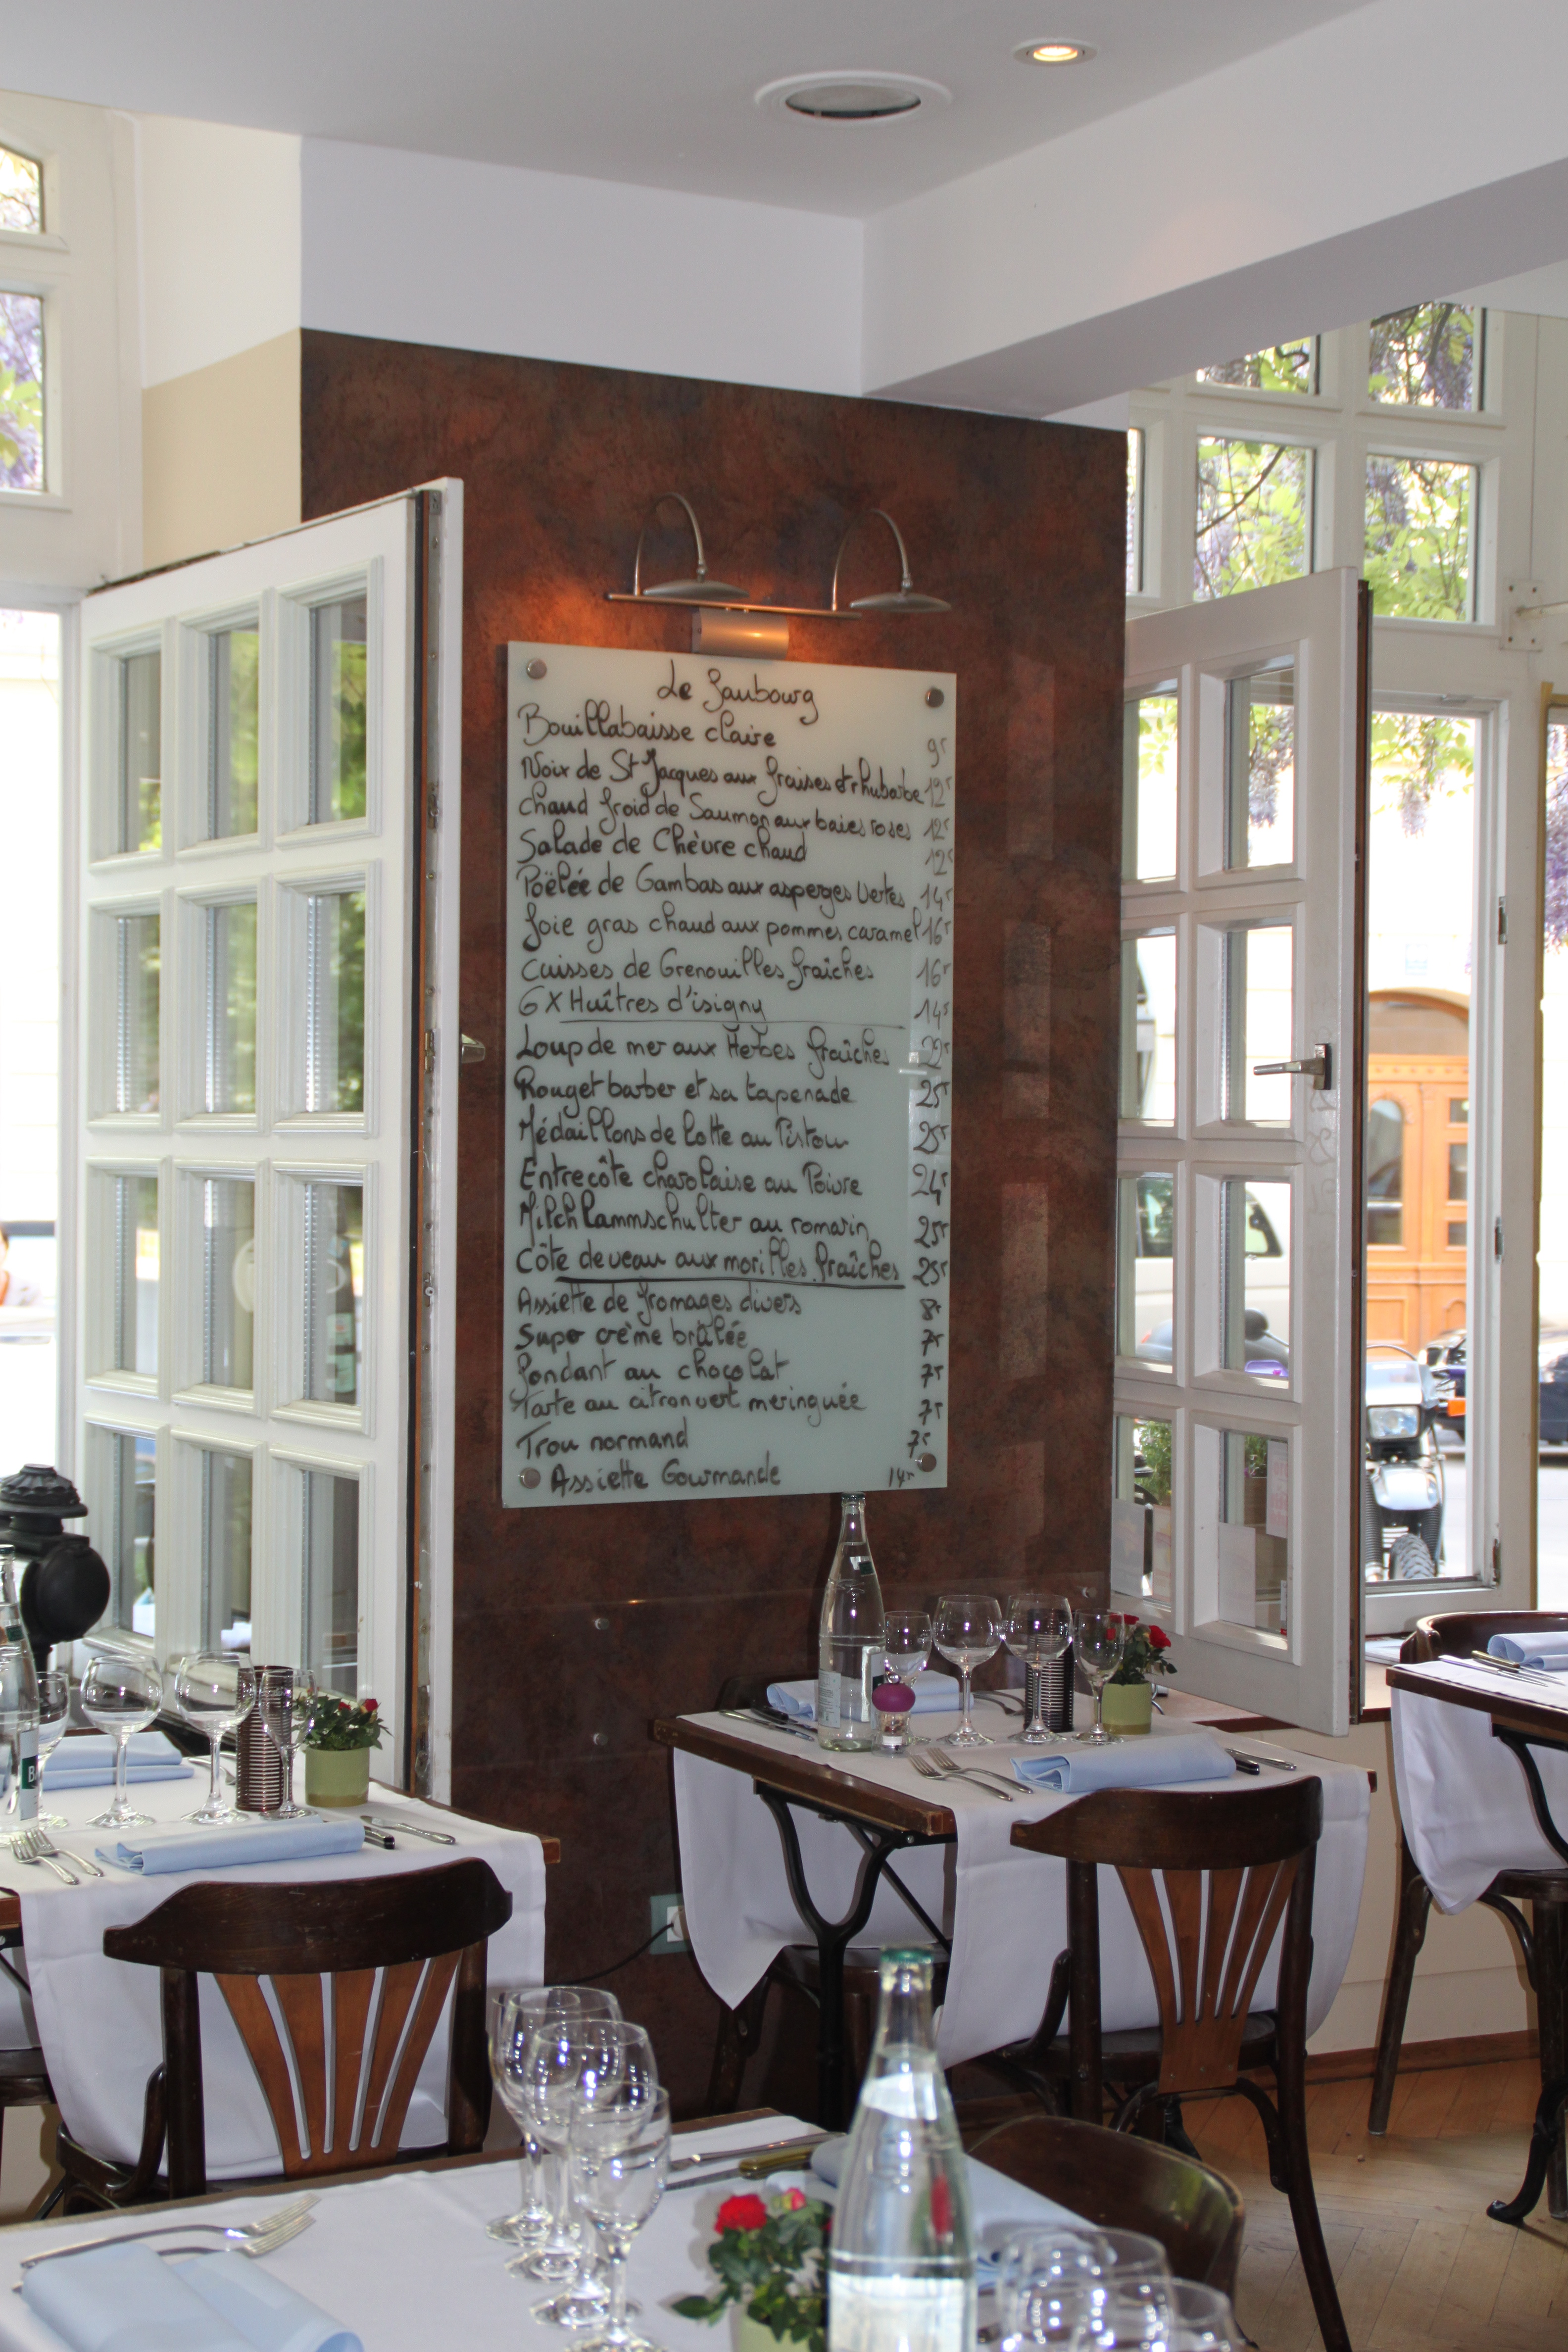 Le Faubourg
Bouillabaisse claire 9,-
Noix de St Jacques aux fraises et rhubarbe 12,-
Chaud froid de Saumon aux baies roses 12,-
Salade de Chèvre chaud 12,-
Poëlée de Gambas aux asperges vertes 14,-
Foie gras chaud aux pommes caramel 16,-
Cuisses de Grenouilles fraîches 16,-
6 X Huîtres d'isigny 14,-
Loup de mer aux Herbes fraîches 29,-
Rouget barbet et sa tapenade 25,-
Médaillons de lotte au Pistou 25,-
Entrecôte charolaise au Poivre 24,-
Milchlammschulter au romarin 25,-
Côte de veau aux morilles fraîches 25,-
Assiette de fromages divers 8,-
Super crème brûlée 7,-
Fondant au chocolat 7,-
Tarte au citron vert meringuée 7,-
Trou normand 7,-
Assiette Gourmande 14,-